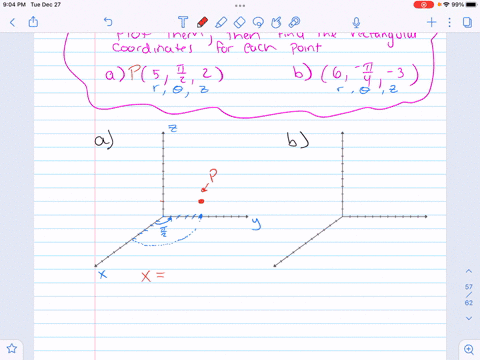 9:04 PM Tue Dec 27
99%
Plot them, then find the rectangular
coordinates for each point
a) P(5, π/2, 2) b) (6, -π/4, -3)
r, θ, z r, θ, z
a) z b)
P
π/2 y
x x =
57
/
62